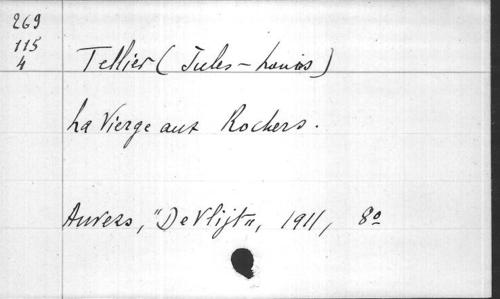 269
115
4
Tellier (Jules-Louis)
La Vierge aux Rochers.
Anvers, "De Vlijt", 1911, 8º